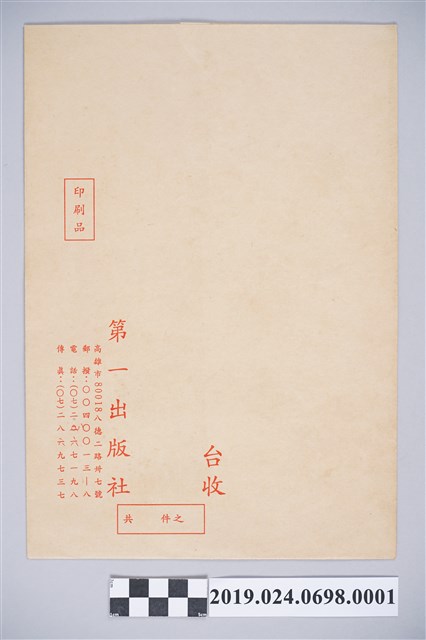 台收
印刷品
第一出版社
高雄市80018八德二路卅七號
郵撥：〇〇四〇〇一三—八
電話：(〇七)二〇六七一九八
傳真：(〇七)二八六九七三七
共　件之
2019.024.0698.0001